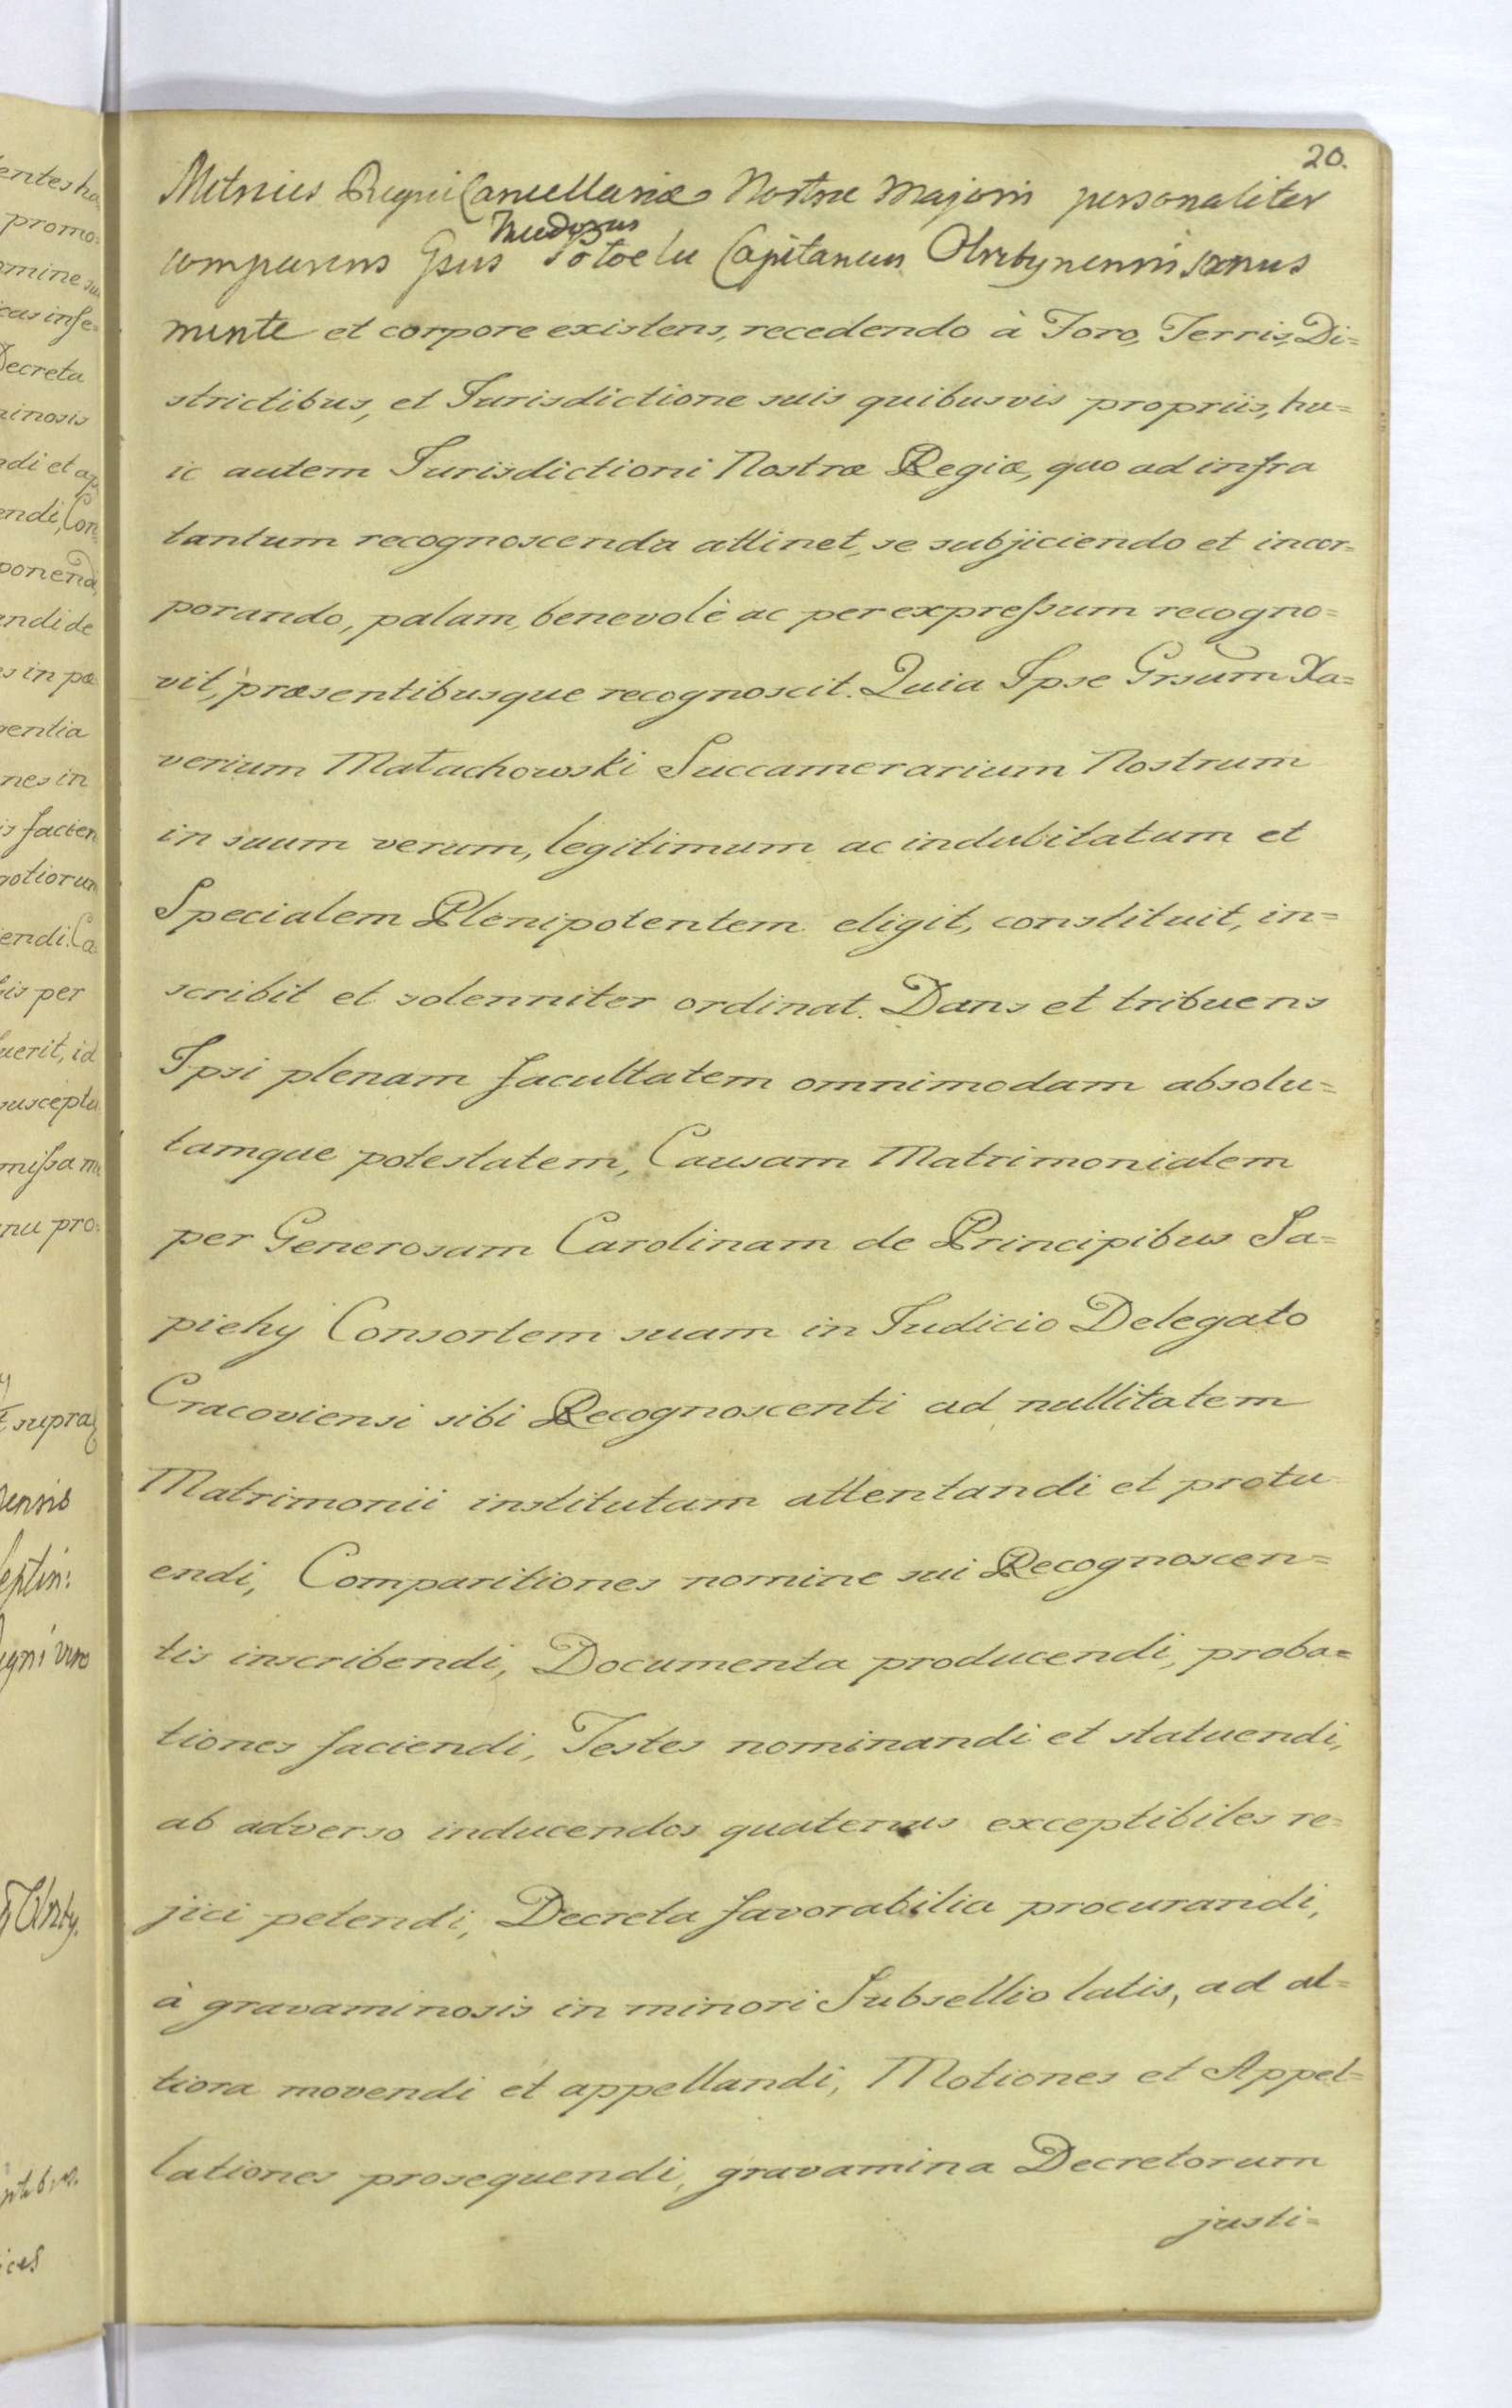 20.
Metrices Regni Cancellariæ Nostræ Majoris personaliter
Theodorus
comparens Gsus Potocki Capitaneus Olsztynensis sanus
mente et corpore existens, recedendo à Foro, Terris, Di=
strictibus, et Jurisdictione suis quibusvis propriis, hu=
ic autem Jurisdictioni Nostræ Regiæ, quo ad infra
tantum recognoscenda attinet, se subjiciendo et incor=
porando, palam, benevolè ac per expressum recogno=
vit, præsentibusque recognoscit. Quia Ipse Grsum Xa=
verium Małachowski Succamerarium Nostrum
in suum verum, legitimum ac indubitatum et
Specialem Plenipotentem eligit, constituit, in=
scribit et solenniter ordinat. Dans et tribuens
Ipsi plenam facultatem omnimodam absolu=
tamque potestatem, Causam Matrimonialem
per Generosam Carolinam de Principibus Sa=
piehy Consortem suam in Judicio Delegato
Cracoviensi sibi Recognoscenti ad nullitatem
Matrimonii institutam attentandi et protu
endi, Comparitiones nomine sui Recognoscen=
tis inscribendi, Documenta producendi, proba=
tiones faciendi, Testes nominandi et statuendi,
ab adverso inducendos quatenus exceptibiles re=
jici petendi, Decreta favorabilia procurandi,
à gravaminosis in minori Subsellio latis, ad al=
tiora movendi et appellandi, Motiones et Appel=
lationes prosequendi, gravamina Decretorum
justi=